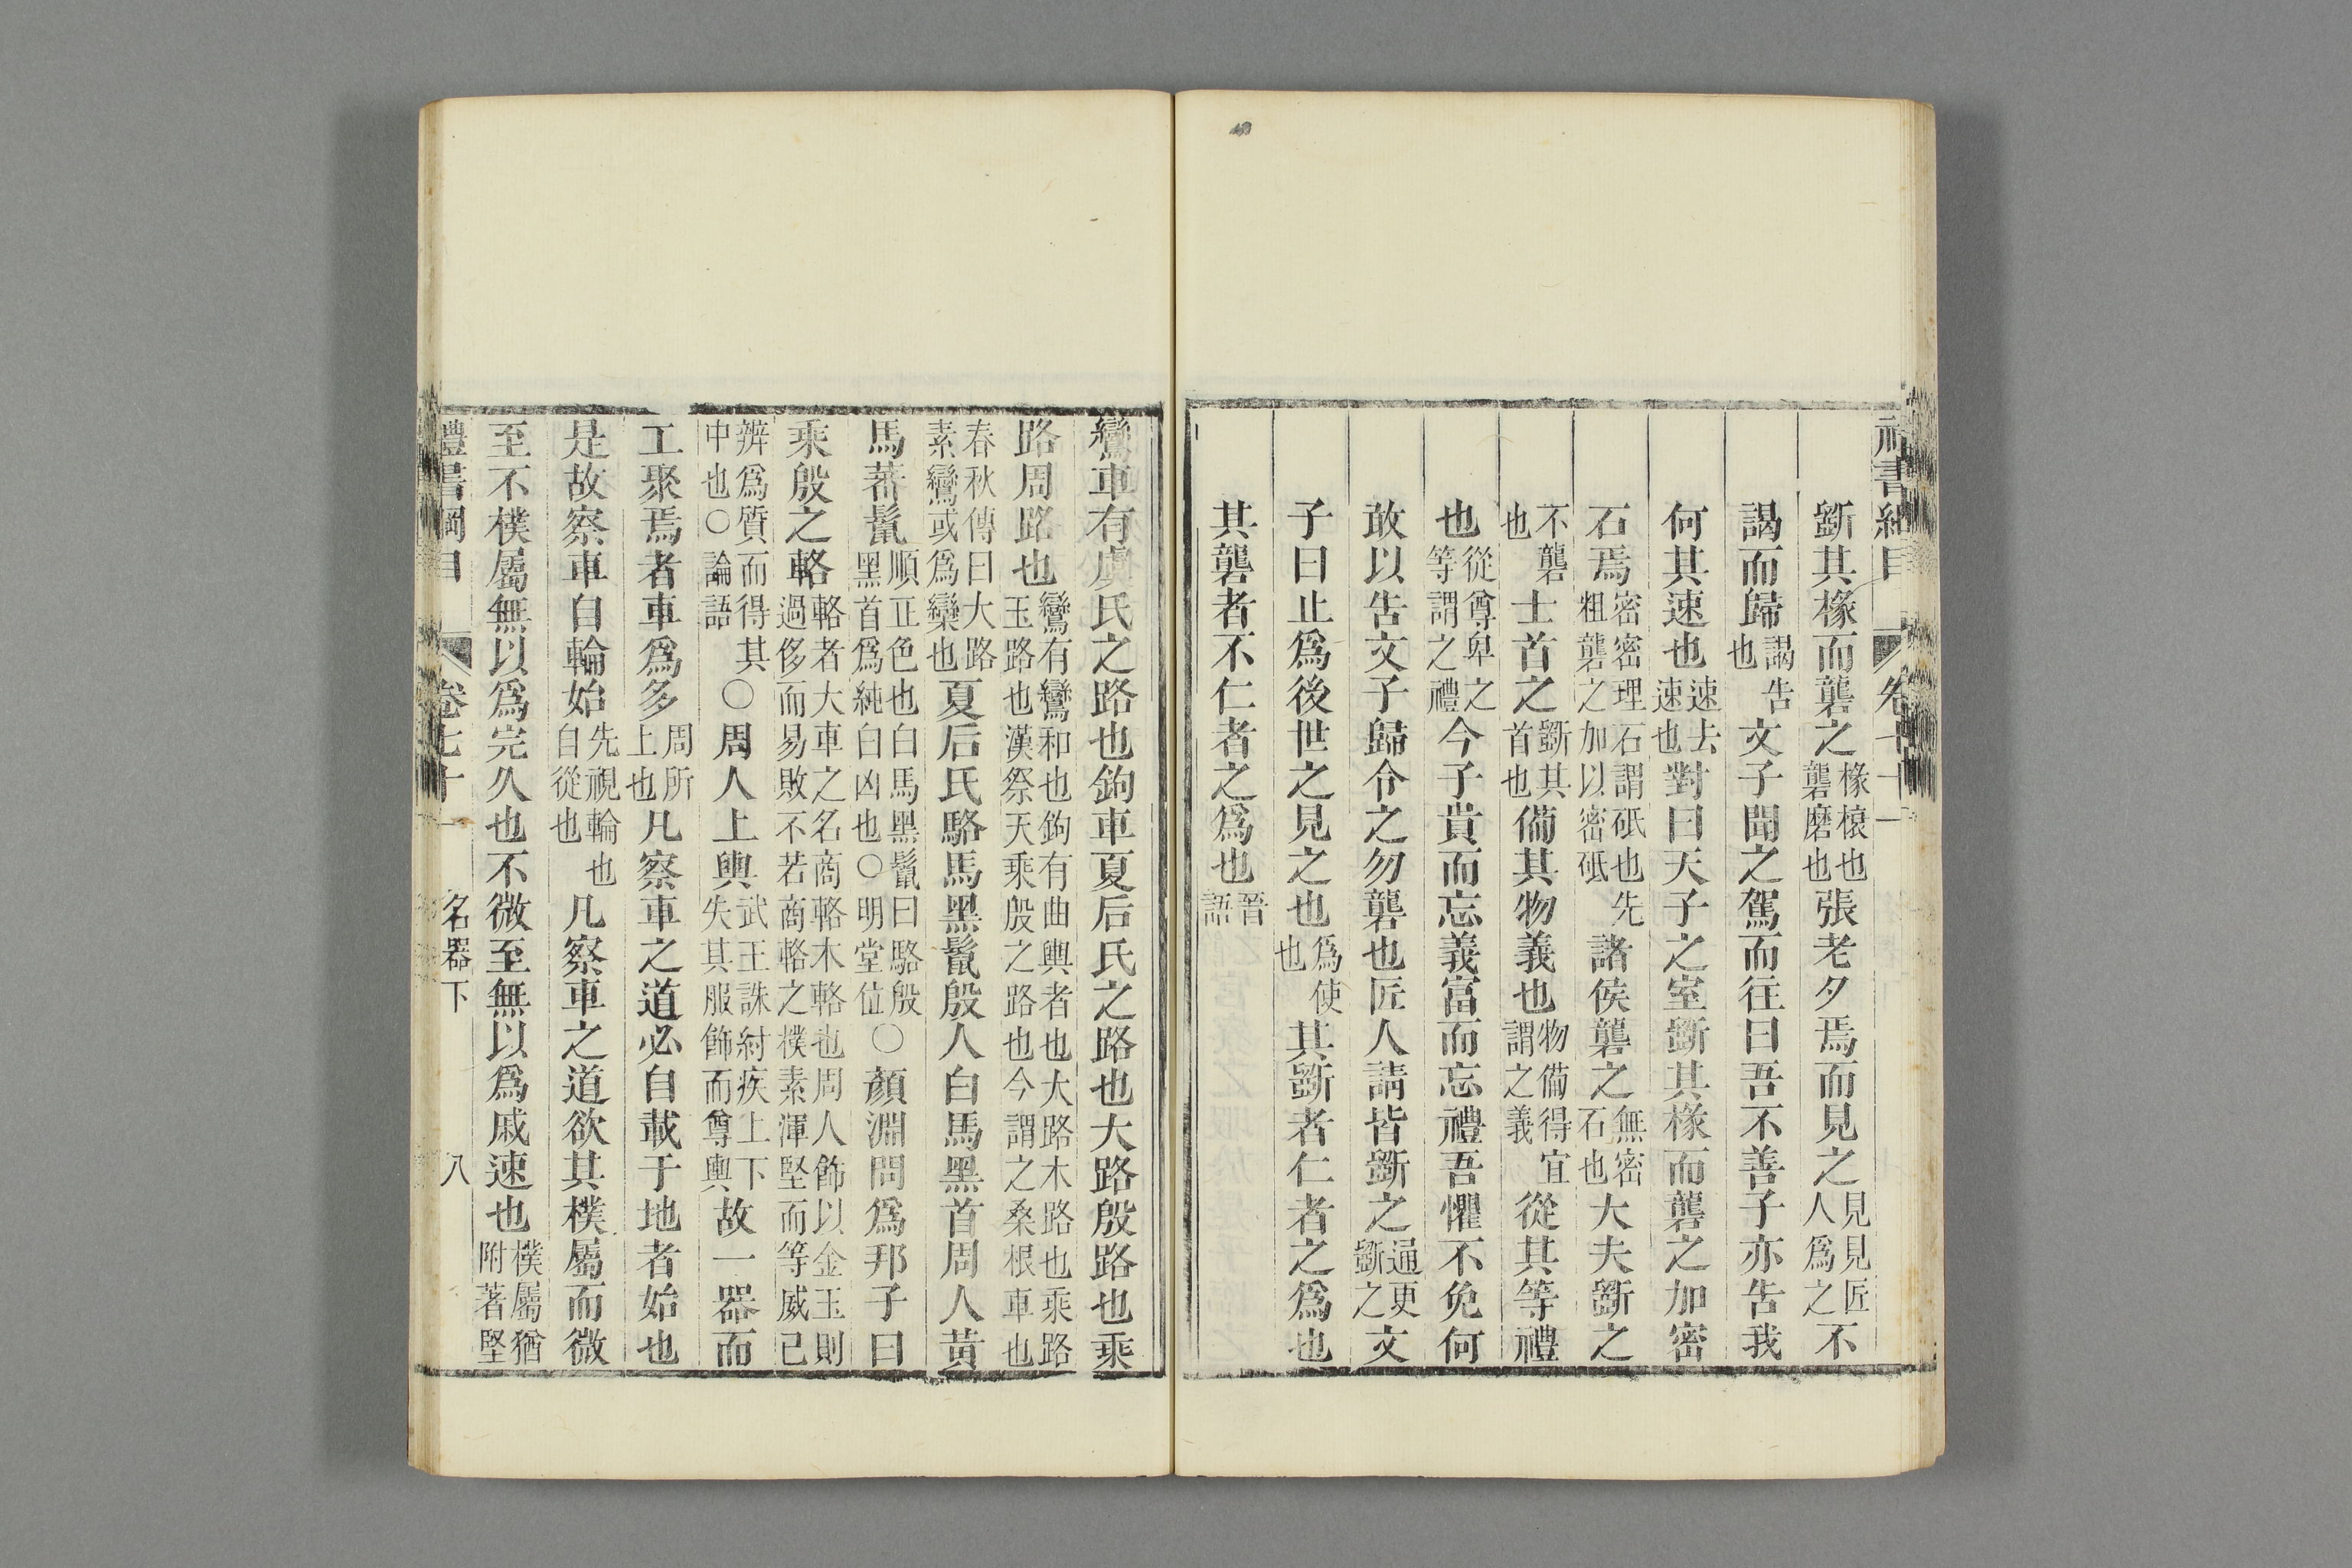 禮書綱目 卷七十一
斵其椽而礱之椽榱也礱磨也張老夕焉而見之見見匠人爲之不
謁而歸謁告也文子聞之駕而往曰吾不善子亦告我
何其速也速去速也對曰天子之室斵其椽而礱之加密
石焉密密理石謂砥也先粗礱之加以密砥諸侯礱之無密石也大夫斵之
不礱也士首之斵其首也備其物義也物備得宜謂之義從其等禮
也從尊卑之等謂之禮今子貴而忘義富而忘禮吾懼不免何
敢以告文子歸令之勿礱也匠人請皆斵之通更斵之文
子曰止爲後世之見之也爲使也其斵者仁者之爲也
其礱者不仁者之爲也晉語
鸞車有虞氏之路也鉤車夏后氏之路也大路殷路也乘
路周路也鸞有鸞和也鉤有曲輿者也大路木路也乘路玉路也漢祭天乘殷之路也今謂之桑根車也
春秋傳曰大路素鸞或爲欒也夏后氏駱馬黑鬣殷人白馬黑首周人黃
馬蕃鬣順正色也白馬黑鬣曰駱殷黑首爲純白凶也〇明堂位〇顏淵問爲邦子曰
乘殷之輅輅者大車之名商輅木輅也周人飾以金玉則過侈而易敗不若商輅之樸素渾堅而等威已
辨爲質而得其中也〇論語〇周人上輿武王誅紂疾上下失其服飾而尊輿故一器而
工聚焉者車爲多周所上也凡察車之道必自載于地者始也
是故察車自輪始先視輪也自從也凡察車之道欲其樸屬而微
至不樸屬無以爲完久也不微至無以爲戚速也樸屬猶附著堅
禮書綱目 卷七十一 名器下 八